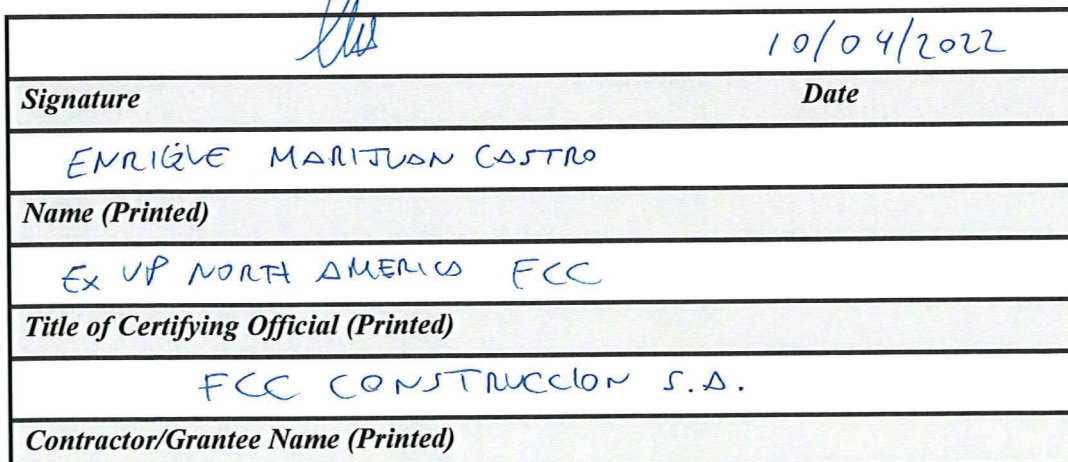 10/04/2022
Signature Date
ENRIQUE MARIJUAN CASTRO
Name (Printed)
EX VP NORTH AMERICA FCC
Title of Certifying Official (Printed)
FCC CONSTRUCCION S.A.
Contractor/Grantee Name (Printed)